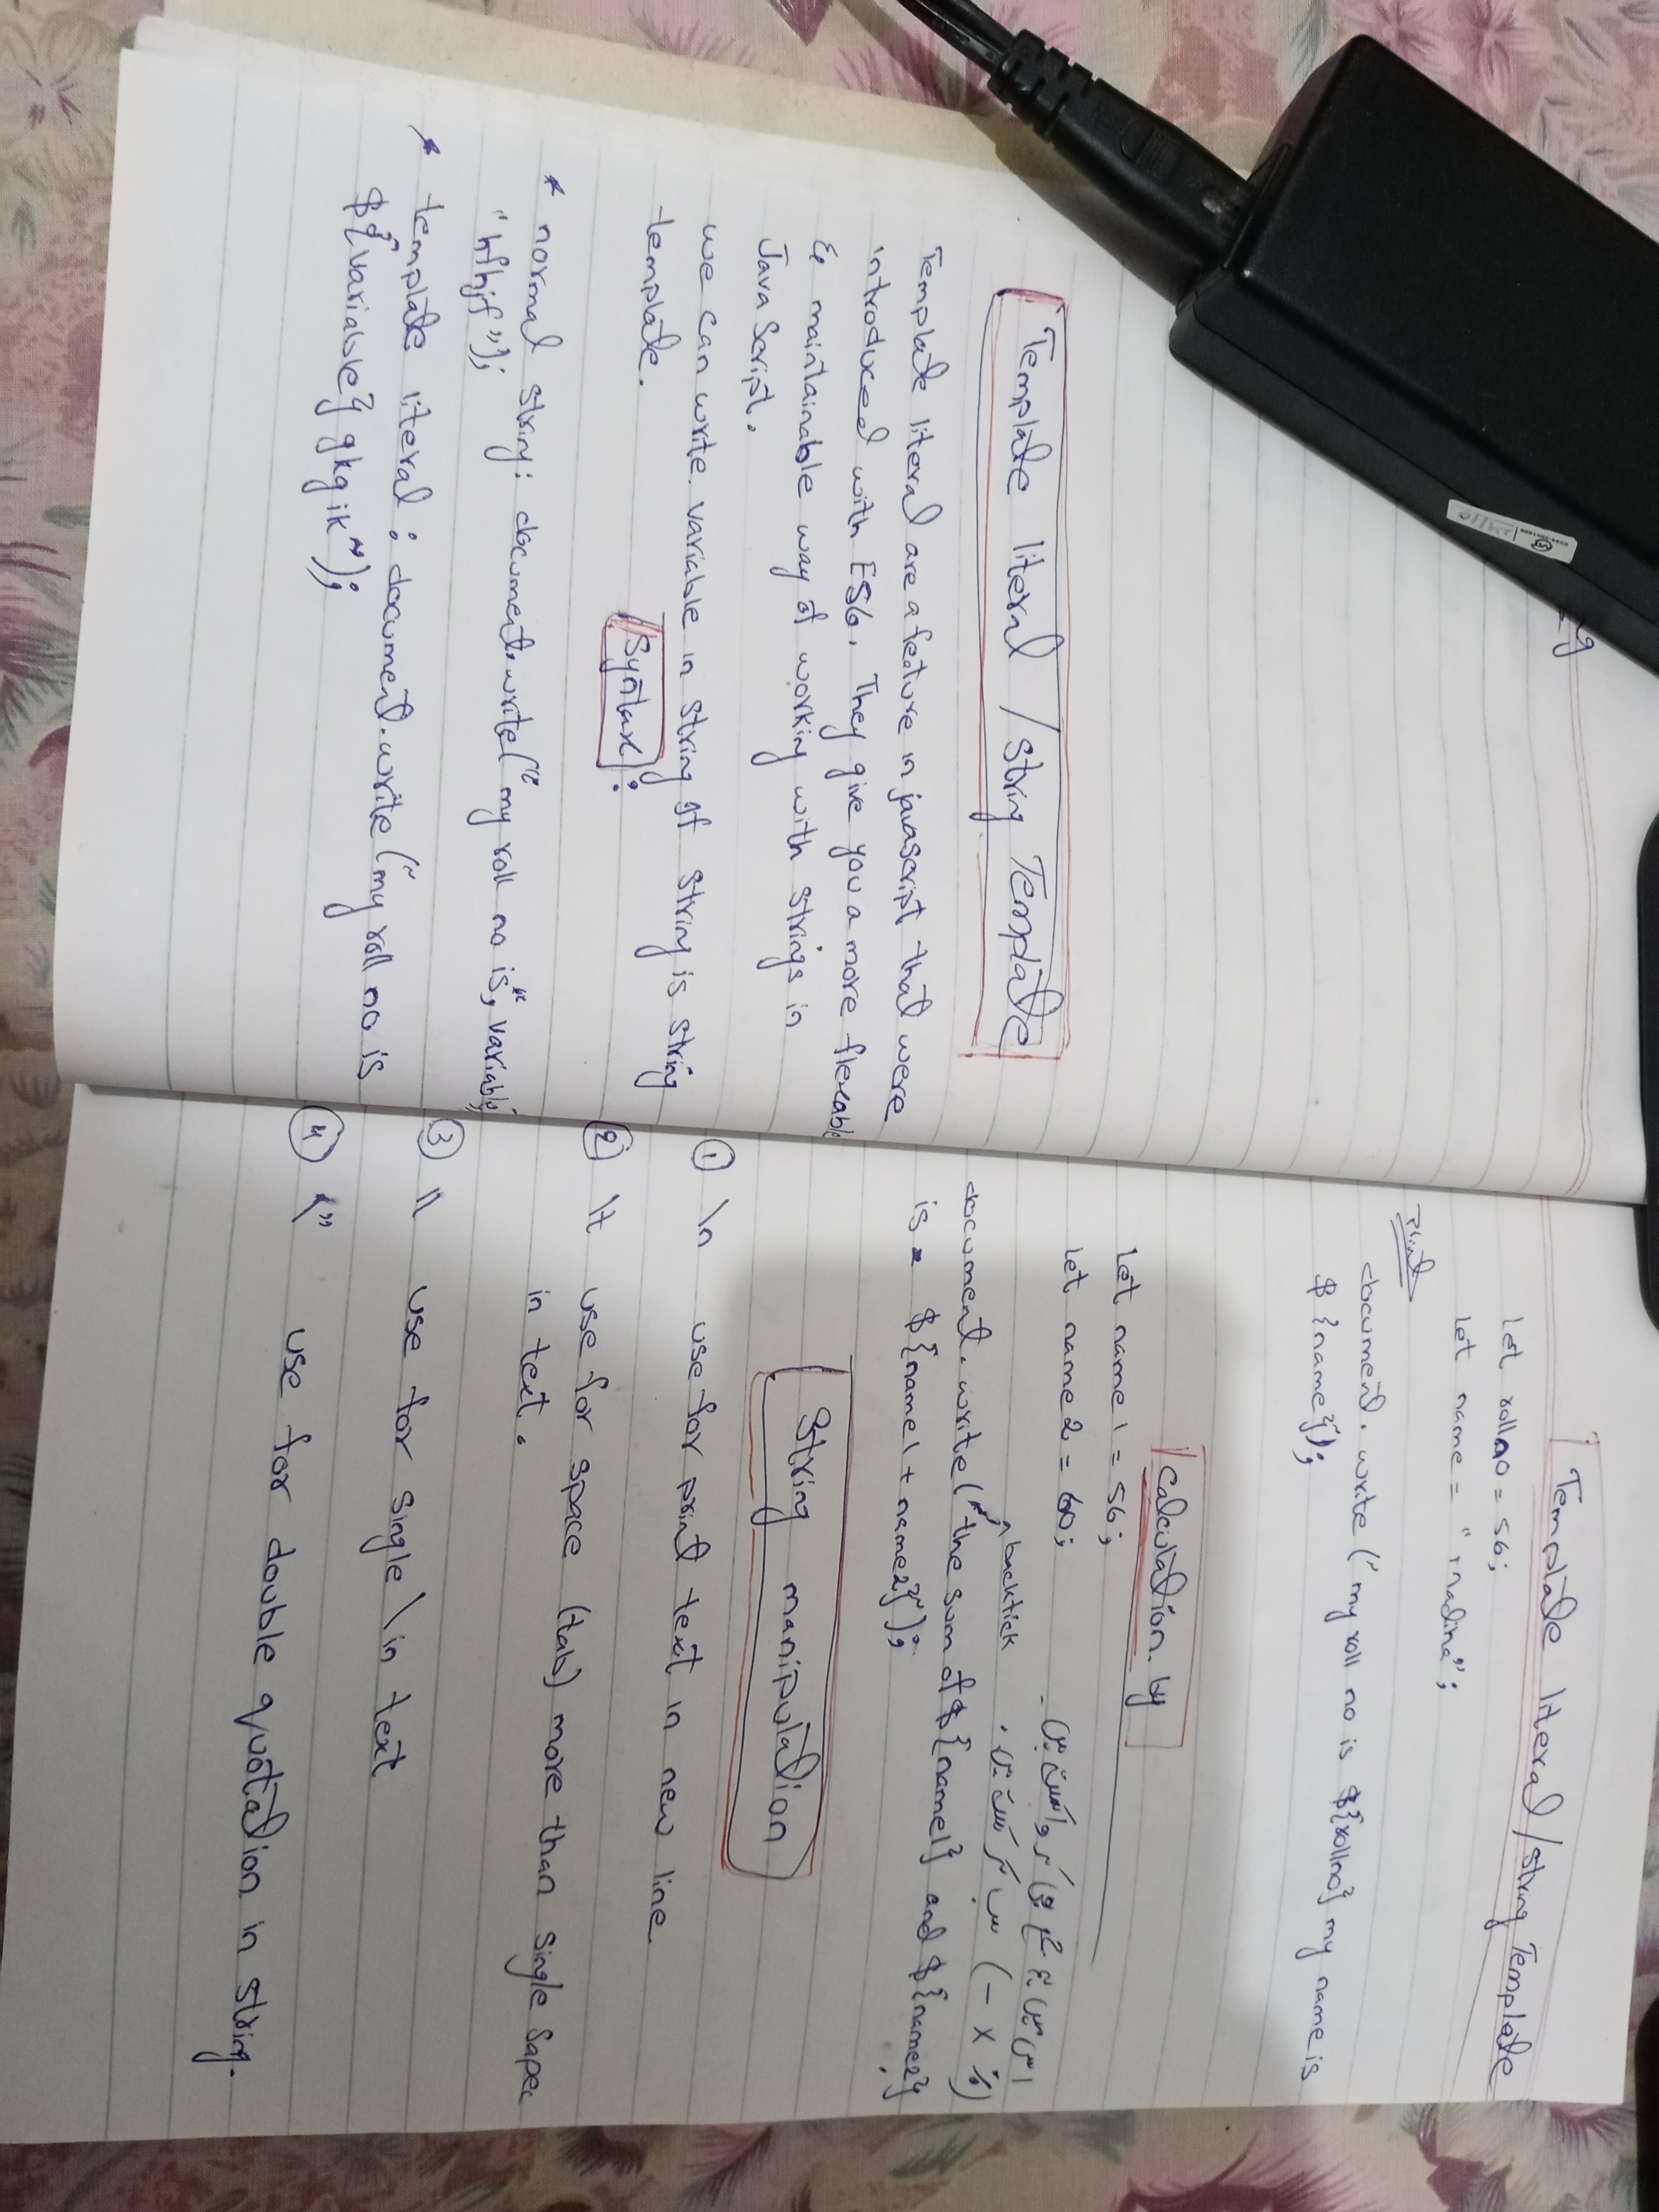 Template literal / string Template
Template literal are a feature in javascript that were
introduced with ES6. They give you a more flexable
& maintainable way of working with strings in
Java Script.
we can write variable in string of string is string
template.
Syntax:
* normal string: document.write(" my roll no is", variable,
"hfhjf");
* template literal : document.write (`my roll no is
${variable} gkgik`);
Template literal / string Template
let rollno = 56;
let name = "madina";
Print
document.write (`my roll no is ${rollno} my name is
${name}`);
Calculation by
let name1 = 56;
let name2 = 60;
backtick
document.write(`the sum of ${name1} and ${name2}
is = ${name1 + name2}`);
String manipulation
① \n use for print text in new line.
② \t use for space (tab) more than single sapec
in text.
③ \\ use for single \ in text
④ \" use for double quotation in string.